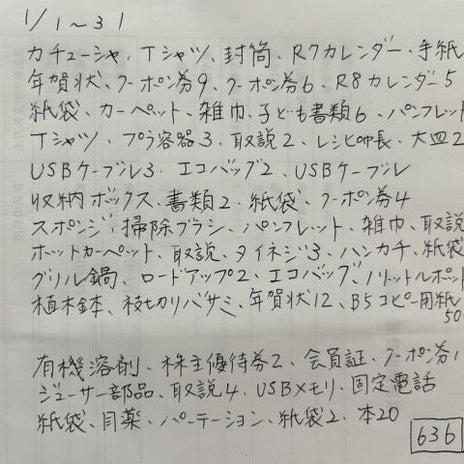 1/1~31
カチューシャ、Tシャツ、封筒、R7カレンダー、手紙
年賀状、クーポン券9、クーポン券6、R8カレンダー5
紙袋、カーペット、雑巾、子ども書類6、パンフレット
Tシャツ、プラ容器3、取説2、レシピ帳、大皿2
USBケーブル3、エコバッグ2、USBケーブル
収納ボックス、書類2、紙袋、クーポン券4
スポンジ、掃除ブラシ、パンフレット、雑巾、取説
ホットカーペット、取説、タイネジ3、ハンカチ、紙袋
グリル鍋、ロードアップ2、エコバッグ、ノリットルポット
植木鉢、枝切りバサミ、年賀状12、B5コピー用紙
50
有機溶剤、株主優待券2、会員証、クーポン券1
ジューサー部品、取説4、USBメモリ、固定電話
紙袋、目薬、パーテーション、紙袋2、本20
636